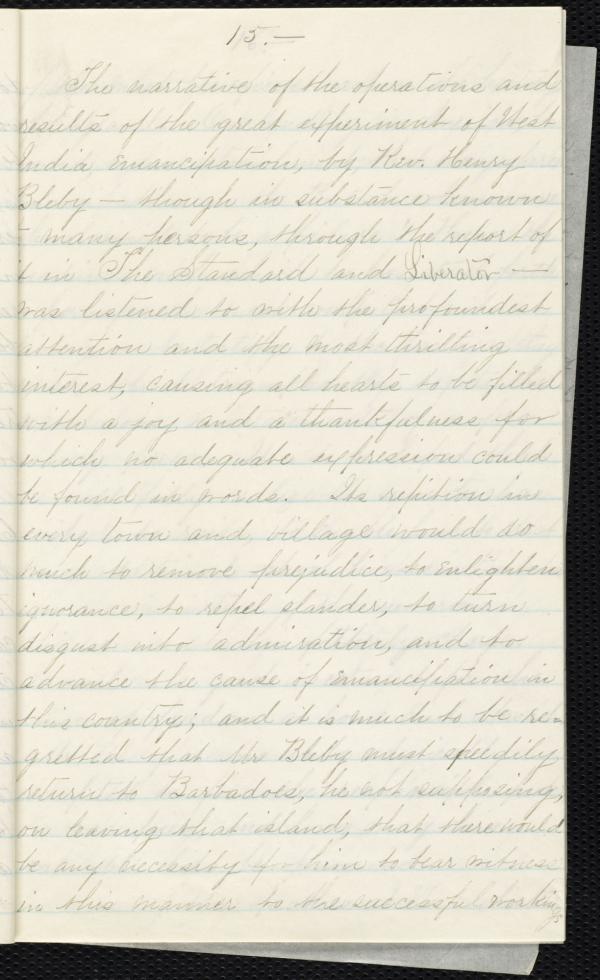 15.—
The narrative of the operations and
results of the great experiment of West
India Emancipation, by Rev. Henry
Bleby — though in substance known
many persons, through the report of
it in The Standard and Liberator —
was listened to with the profoundest
attention and the most thrilling
interest, causing all hearts to be filled
with a joy and a thankfulness for
which no adequate expression could
be found in words. Its repition in
every town and village would do
much to remove prejudice, to enlighten
ignorance, to repel slander, to turn
disgust into admiration, and to
advance the cause of Emancipation in
this country; and it is much to be re=
gretted that Mr Bleby must speedily
return to Barbadoes, he not supposing,
on leaving that island, that there would
be any necessity for him to bear witness
in this manner to the successful workings